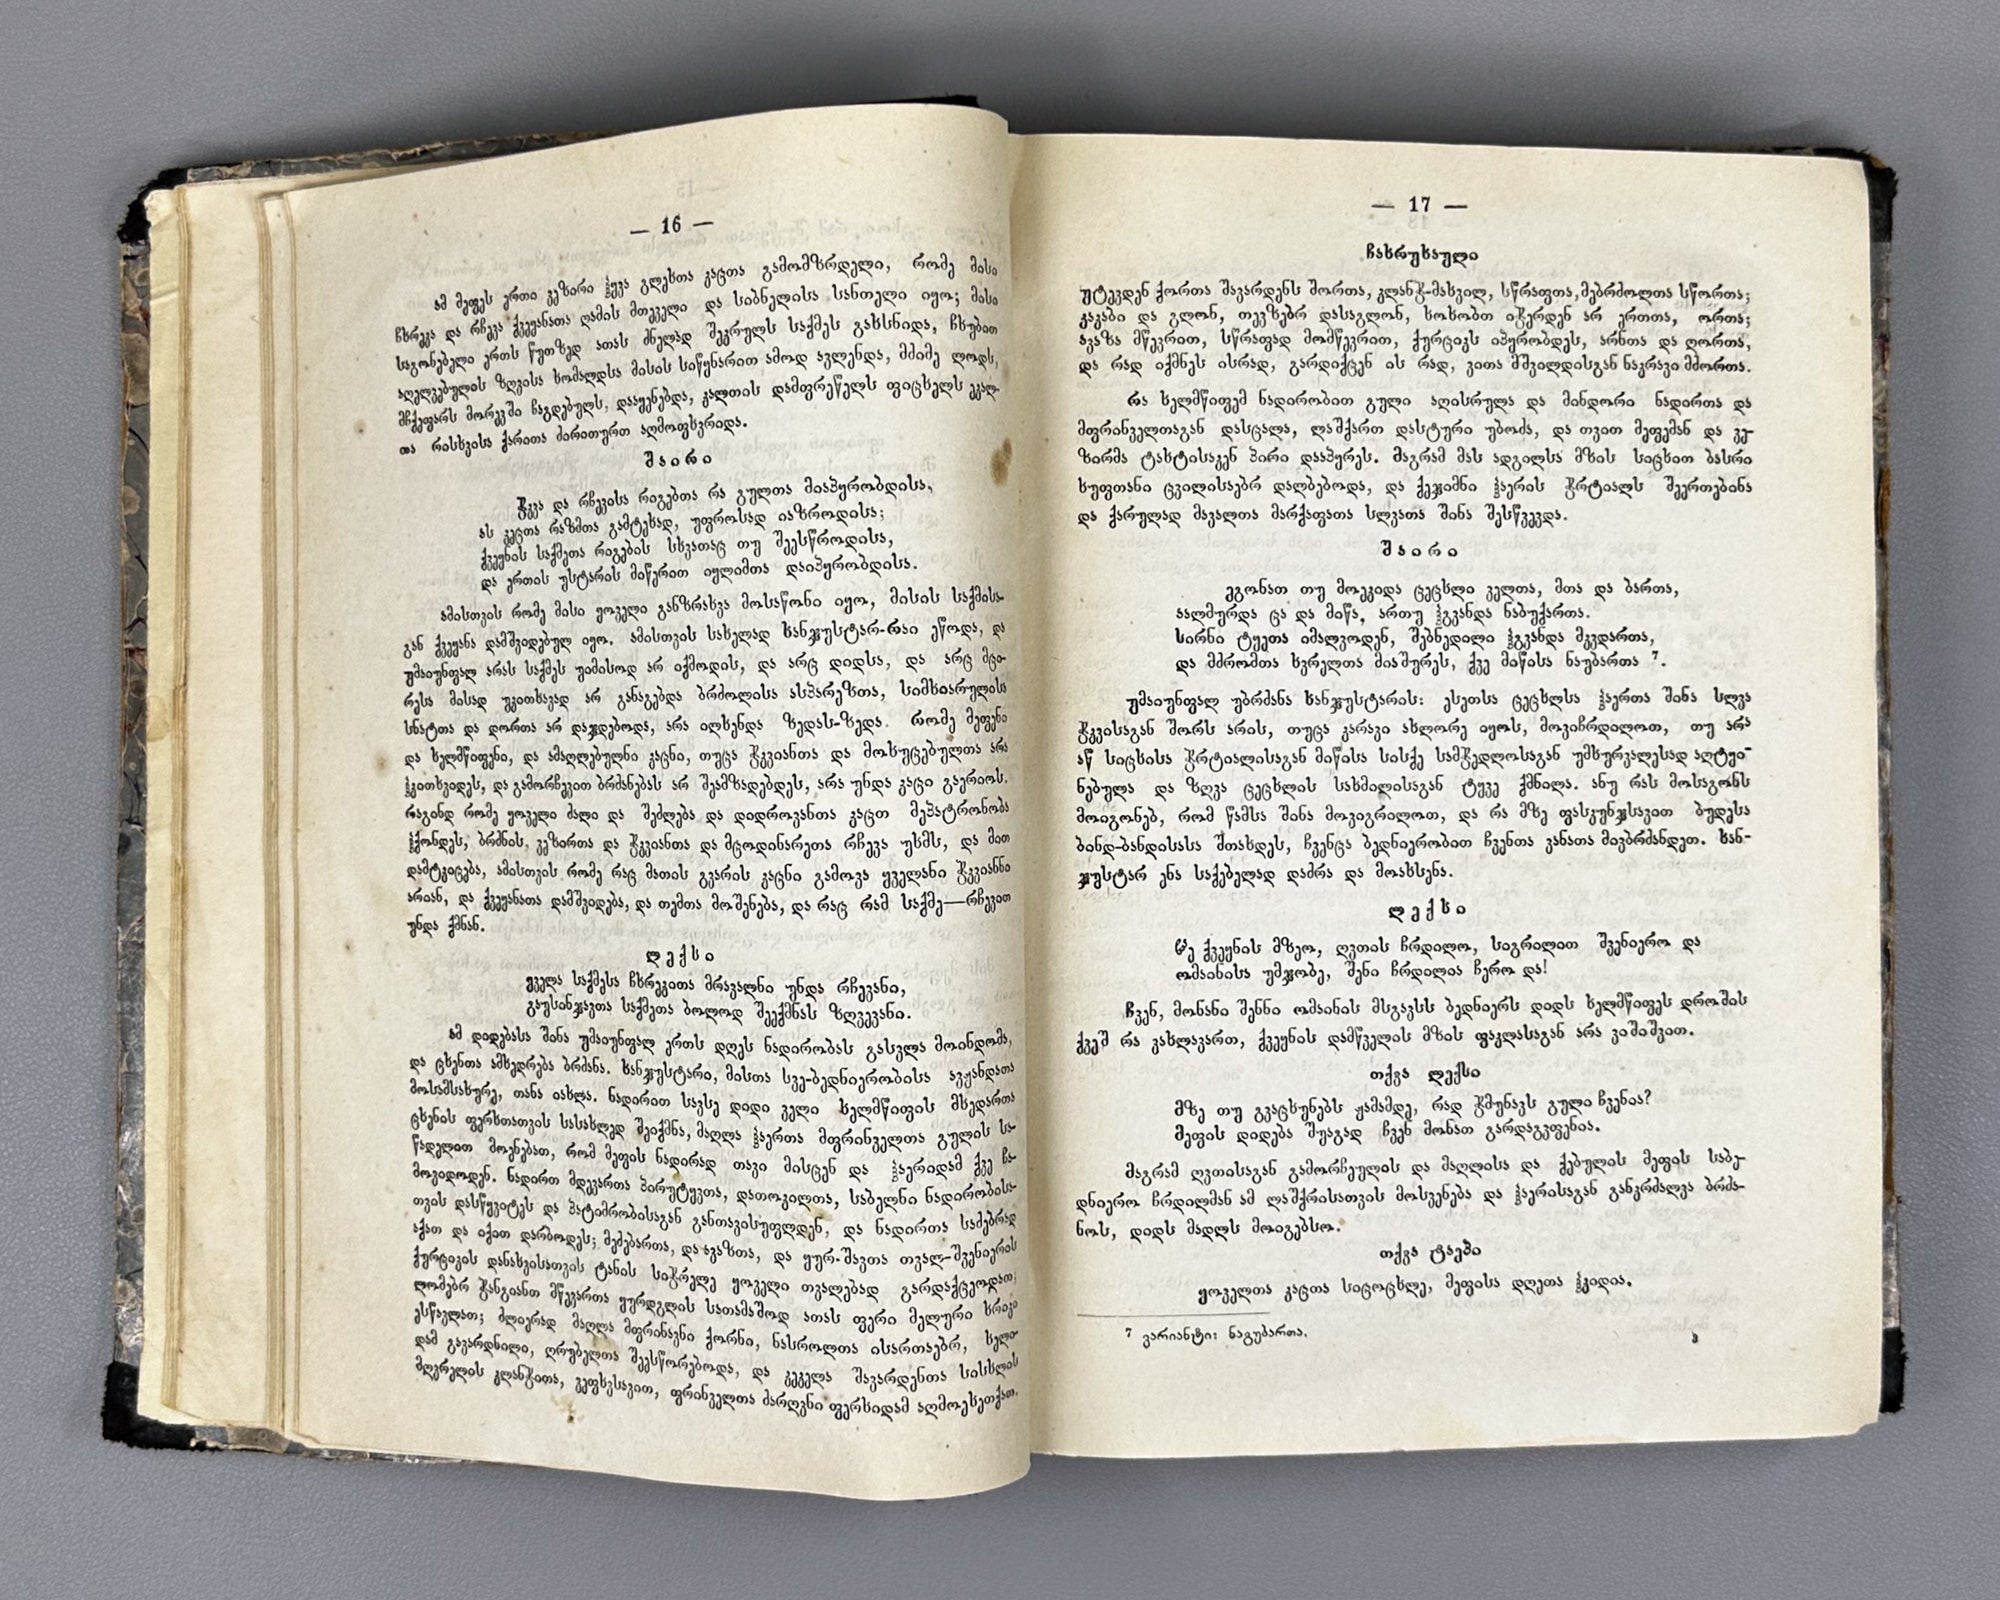 — 16 —
ამ მეფეს ერთი ვეზირი ჰყვა გლეხთა კაცთა გამომზრდელი, რომე მისი
ჩხრეკა და რჩევა ქვეყანათა ღამის მთეველი და სიბნელისა სანთელი იყო; მისი
საგონებელი ერთს წუთზედ ათას ძნელად შეკრულს საქმეს გახსნიდა, ჩხუბით
აღელვებულის ზღვისა ხომალდსა მისის სიწყნარით ამოდ ავლენდა, მძიმე ლოდს,
მჩქეფარს მორევში ჩაგდებულს, დააყენებდა, კალთის დამფრეწელს ფიცხელს ეკალ-
თა რისხვისა ქარითა ძირითურთ აღმოფხვრიდა.
შაირი
ჭკვა და რჩევისა რიგებთა რა გულთა მიაპყრობდისა,
ას კეცთა რაზმთა გამტეხად, უფროსად იაზროდისა;
ქვეყნის საქმეთა რიგების სხვათაც თუ შეესწროდისა,
და ერთის უსტარის მიწერით იყლიმთა დაიპყრობდისა.
ამისთვის რომე მისი ყოველი განზრახვა მოსაწონი იყო, მისის საქმისა-
გან ქვეყანა დამშვიდებულ იყო. ამისთვის სახელად ხანჯუსტარ-რაი ეწოდა, და
უმაიუნფალ არას საქმეს უიმისოდ არ იქმოდის, და არც დიდსა, და არც მცი-
რესა მისად უკითხავად არ განაგებდა ბრძოლისა ასპარეზთა, სიმხიარულისა
სხატთა და დორთა არ დაჯდებოდა, არა ილხენდა ზედას-ზედა. რომე მეფენი
და ხელმწიფენი, და ამაღლებულნი კაცნი, თუცა ჭკვიანთა და მოხუცებულთა არა
ჰკითხვიდეს, და გამორჩევით ბრძანებას არ შეამზადებდეს, არა უნდა კაცი გაერიოს.
რაგინდ რომე ყოველი ძალი და შეძლება და დიდროვანთა კაცთ მეპატრონობა
ჰქონდეს, ბრძნის, ვეზირთა და ჭკვიანთა და მცოდინარეთა რჩევა უსმს, და მით
დამტკიცება, ამისთვის რომე რაც მათის გვარის კაცნი გამოვა ყველანი ჭკვიანნი
არიან, და ქვეყანათა დამშვიდება, და თემთა მოშენება, და რაც რამ საქმე—რჩევით
უნდა ქმნან.
ლექსი
ყველა საქმესა ჩხრეკითა მრავალნი უნდა რჩევანი,
გაუსინჯავთა საქმეთა ბოლოდ შეექმნას ზღვევანი.
ამ დიდებასა შინა უმაიუნფალ ერთს დღეს ნადირობას გასვლა მოინდომა,
და ცხენთა ამხედრება ბრძანა. ხანჯუსტარი, მისთა სვე-ბედნიერობისა ავჟანდათა
მოსამსახურე, თანა იახლა. ნადირით სავსე დიდი ველი ხელმწიფის მხედართა
ცხენის ფერხთათვის სასახლედ შეიქმნა, მაღლა ჰაერთა მფრინველთა გულის სა-
წადელით მოენებათ, რომ მეფის ნადირად თავი მისცენ და ჰაერიდამ ქვე ჩა-
მოვიდოდენ. ნადირთ მდევართა პირუტყვთა, დათოკილთა, საბელნი ნადირობისა-
თვის დასწყვიტეს და პატიმრობისაგან განთავისუფლდენ, და ნადირთა საძებრად
აქათ და იქით დარბოდეს; მეძებართა, და ავაზთა, და ყურ-შავთა თვალ-შვენიერის
ქურციკის დანახვისათვის ტანის სიჭრელე ყოველი თვალებად გარდაქცეოდათ;
ლომებრ ჭანგიანთ მწევართა ყურდგლის სათამაშოდ ათას ფერი მელური ხრიკი
ესწავლათ; ძლიერად მაღლა მფრინავნი ქორნი, ნასროლთა ისართაებრ, ხელი-
დამ გავარდნილი, ღრუბელთა შეესწორებოდა, და კეკელა შავარდენთა სისხლის
მღვრელის კლანჭითა, ვეფხვსავით, ფრინველთა ძარღვნი ფერხიდამ აღმოესეთქათ.
— 17 —
ჩახრუხაული
უტევდენ ქორთა შავარდენს შორთა, კლანჭ-მახვილ, სწრაფთა, მებრძოლთა სწორთა;
კაკაბი და გლონ, თევზებრ დასაგლონ, ხოხობთ იჭერდენ არ ერთთა, ორთა;
ავაზა მწევრით, სწრაფად მომწევრით, ქურციკს იპყრობდეს, არნთა და ღორთა,
და რად იქმნეს ისრად, გარდიქცენ ის რად, ვითა მშვილდისგან ნაკრავი მძორთა.
რა ხელმწიფემ ნადირობით გული აღისრულა და მინდორი ნადირთა და
მფრინველთაგან დასცალა, ლაშქართ დასტური უბოძა, და თვით მეფემან და ვე-
ზირმა ტახტისაკენ პირი დააპყრეს. მაგრამ მას ადგილსა მზის სიცხით ბასრი
ხუფთანი ცვილისაებრ დალბებოდა, და ქეჯიმნი ჰაერის ჭრტიალს შეერთებინა
და ქარულად მავალთა მარქაფათა სლვათა შინა შესწვევდა.
შაირი
ეგონათ თუ მოეკიდა ცეცხლი ველთა, მთა და ბართა,
აალმურდა ცა და მიწა, ართუ ჰგვანდა ნაბუქართა.
სირნი ტყეთა იმალვოდენ, შებნედილი ჰგვანდა მკვდართა,
და მძრომთა ხვრელთა მიაშურეს, ქვე მიწისა ნაუბართა 7.
უმაიუნფალ უბრძანა ხანჯუსტარის: ესეთსა ცეცხლსა ჰაერთა შინა სლვა
ჭკვისაგან შორს არის, თუცა კარავი ახლორე იყოს, მოვიჩრდილოთ, თუ არა
აწ სიცხისა ჭრტიალისაგან მიწისა სისქე სამჭედლოსაგან უმხურვალესად აღტყი-
ნებულა და ზღვა ცეცხლის სახმილისაგან ტყვე ქმნილა. ანუ რას მოსაგონს
მოიგონებ, რომ წამსა შინა მოვიგრილოთ, და რა მზე ფასკუნჯსავით ბუდესა
ბინდ-ბანდისასა შთახდეს, ჩვენცა ბედნიერობით ჩვენთა ვანათა მივბრძანდეთ. ხან-
ჯუსტარ ენა საქებელად დაძრა და მოახსენა.
ლექსი
ჵე ქვეყნის მზეო, ღვთის ჩრდილო, სიგრილით შვენიერო და
ომაინისა უმჯობე, შენი ჩრდილია ჩერო და!
ჩვენ, მონანი შენნი ომაინის მსგავსს ბედნიერს დიდს ხელმწიფეს დროშის
ქვეშ რა ვახლავართ, ქვეყნის დამწველის მზის ფაკლასაგან არა ვიშიშვით.
თქვა ლექსი
მზე თუ გვაცხუნებს ჟამამდე, რად ჭმუნავს გული ჩვენია?
მეფის დიდება შუაგად ჩვენ მონათ გარდაგვფენია.
მაგრამ ღვთისაგან გამორჩეულის და მაღლისა და ქებულის მეფის საბე-
დნიერო ჩრდილმან ამ ლაშქრისათვის მოსვენება და ჰაერისაგან განკრძალვა ბრძა-
ნოს, დიდს მადლს მოიგებსო.
თქვა ტაეპი
ყოველთა კაცთა სიცოცხლე, მეფისა დღეთა ჰკიდია.
7 ვარიანტი: ნაგუბართა.